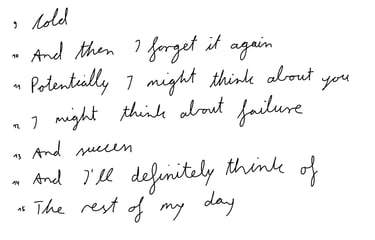 9 Cold
10 And then I forget it again
11 Potentially I might think about you
12 I might think about failure
13 And success
14 And I'll definitely think of
15 The rest of my day